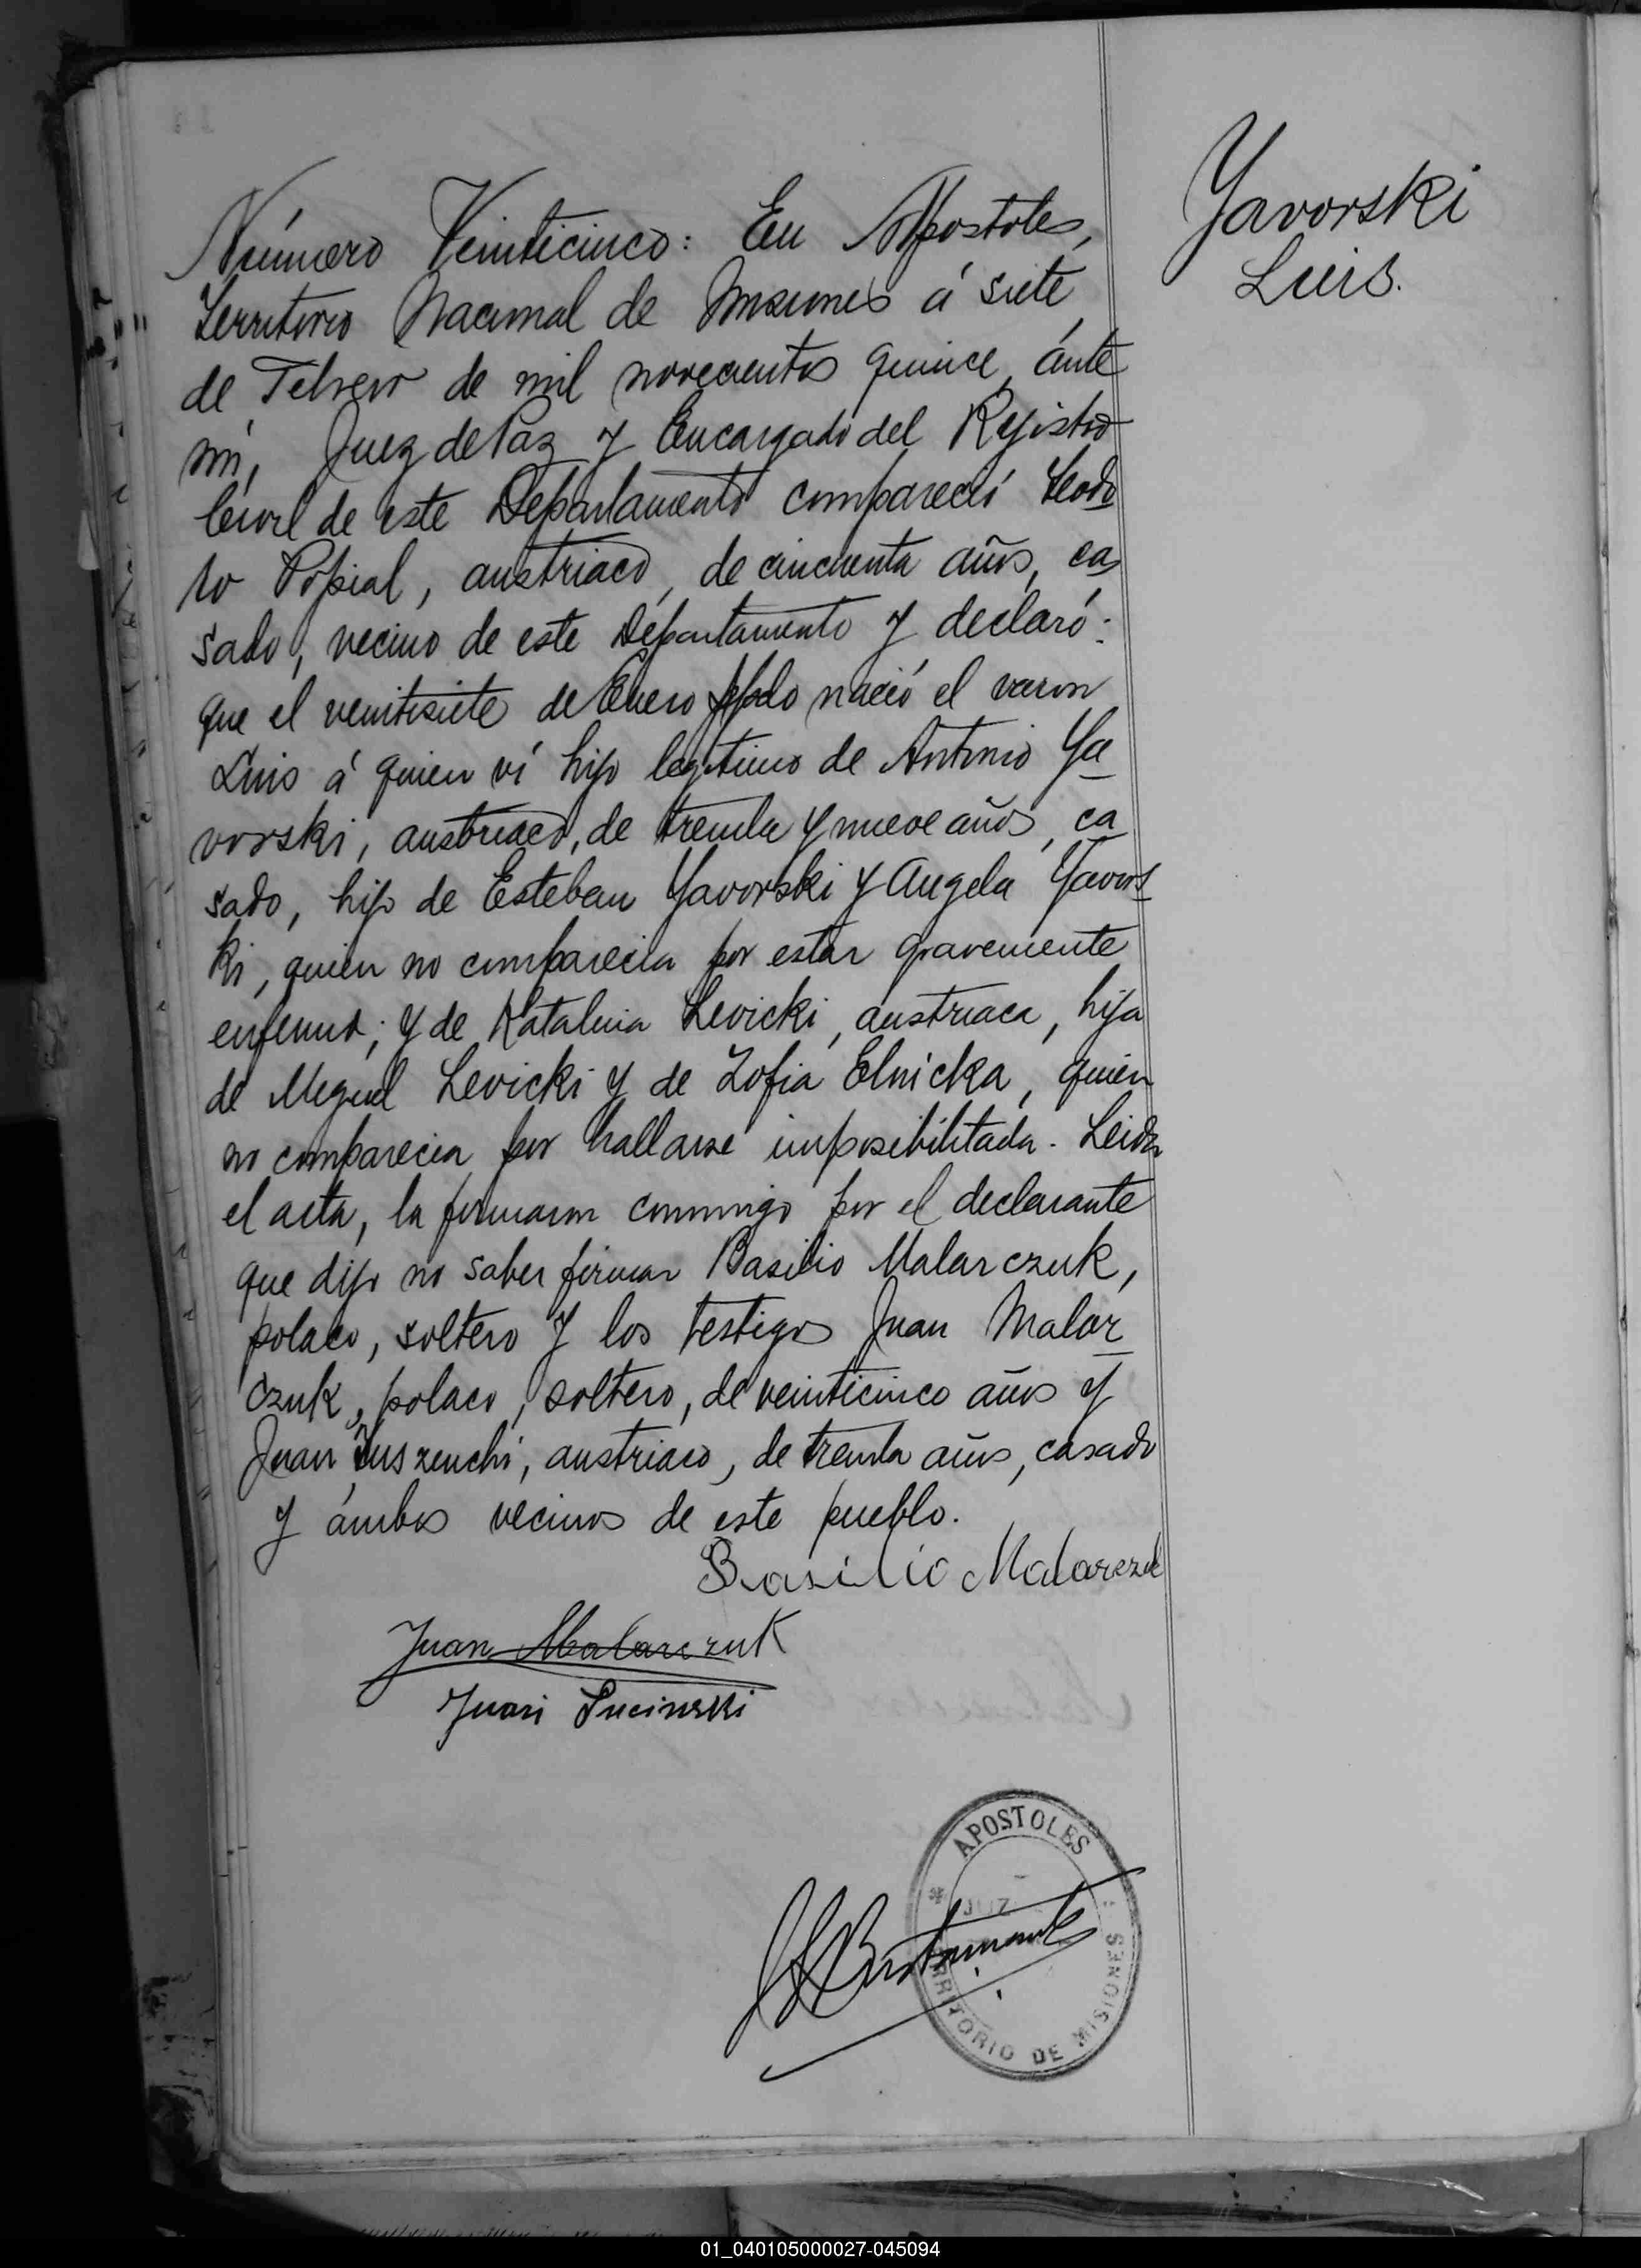 Yavorski
Luis.
Número Veinticinco: En Apostoles,
Territorio Nacional de Misiones á siete
de Febrero de mil novecientos quince, ánte
mí, Juez de Paz y Encargado del Registro
Civil de este Departamento compareció Teodo
ro Popial, austriaco, de cincuenta años, ca
sado, vecino de este Departamento y declaró:
que el veintisiete de Enero ppdo nació el varon
Luis á quien ví hijo legítimo de Antonio Ya
vorski, austriaco, de treinta y nueve años, ca
sado, hijo de Esteban Yavorski y Angela Yavors
ki, quien no comparecia por estar gravemente
enfermo; y de Katalina Levicki, austriaca, hija
de Miguel Levicki y de Zofia Elnicka, quien
no comparecia por hallarse imposibilitada. Leida
el acta, la firmaron conmigo por el declarante
que dijo no saber firmar Basilio Malarczuk,
polaco, soltero y los testigos Juan Malar
czuk, polaco, soltero, de veinticinco años y
Juan, austriaco, de treinta años, casado
y ámbos vecinos de este pueblo.
Basilio Malarczuk
Juan Malarczuk
Juan
APOSTOLES
JUZ
TERRITORIO DE MISIONES
01_040105000027-045094